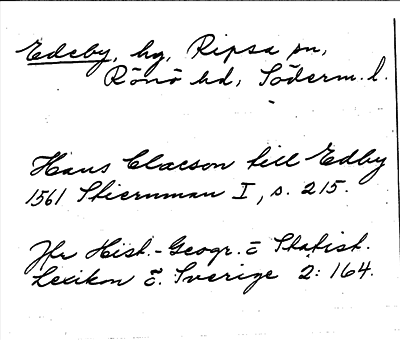 Edeby, hg, Ripsa sn,
Rönö hd, Söderm. l.
Hans Claeson till Edby
1561 Stiernman I, s. 215.
Jfr Hist.-Geogr. o Statist.
Lexikon ö. Sverige 2: 164.